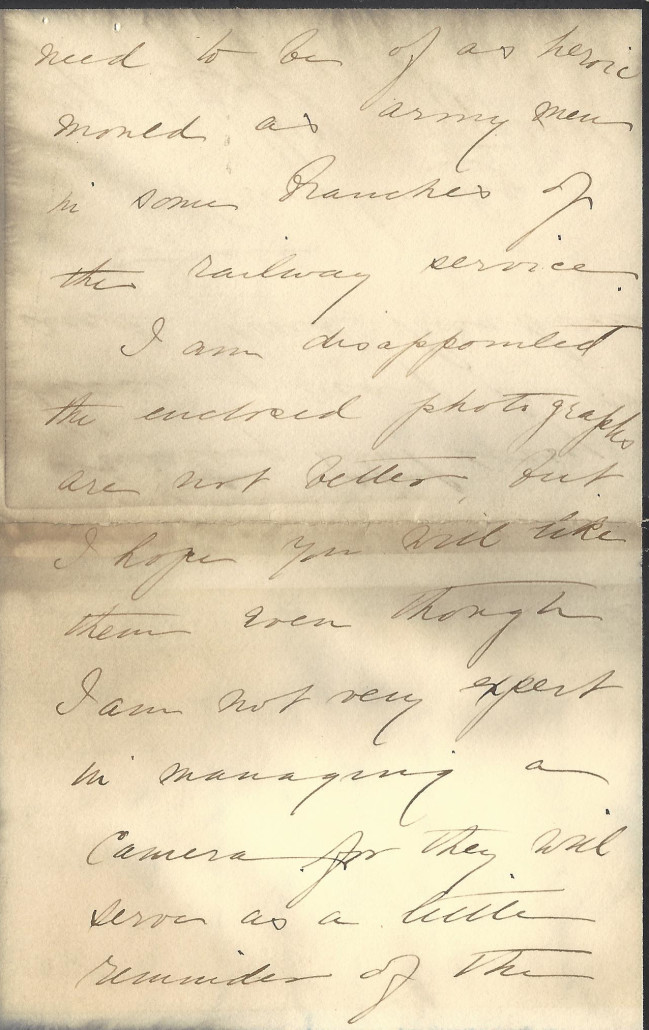 need to be of as heroic
mould as army men
in some branches of
the railway service.
I am disappointed
the enclosed photographs
are not better, but
I hope you will like
them even though
I am not very expert
in managing a
camera for they will
serve as a little
reminder of the